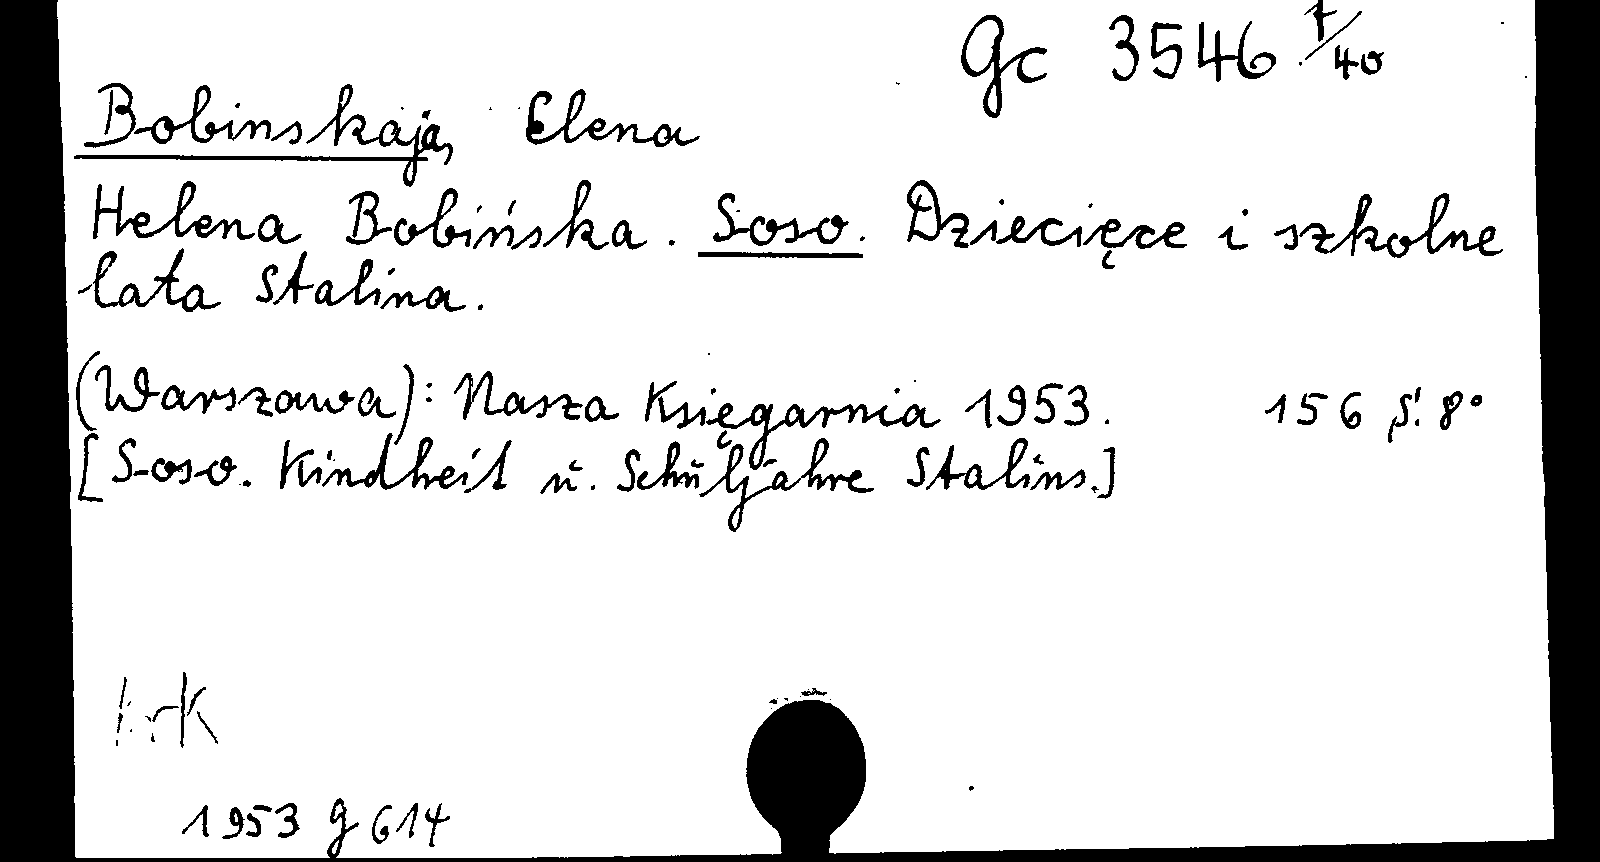 Gc 3546 7/40
Bobinskaja, Elena
Helena Bobińska. Soso. Dziecięce i szkolne
lata Stalina.
(Warszawa): Nasza Księgarnia 1953. 156 S. 8°
[Soso. Kindheit u. Schuljahre Stalins.]
KrK
1953 g 614